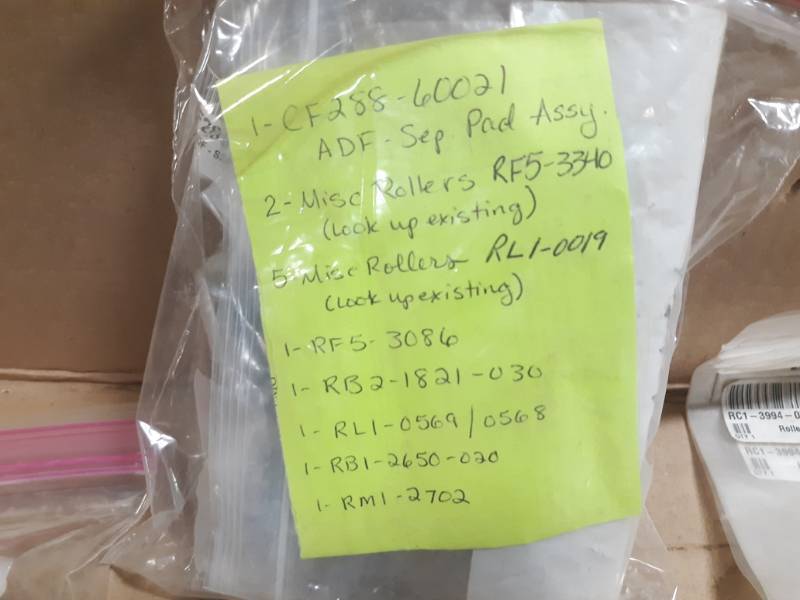 1-CF288-60021
ADF-Sep Pad Assy.
2-Misc Rollers RF5-3340
(Look up existing)
5-Misc Rollers RL1-0019
(Look up existing)
1-RF5-3086
1-RB2-1821-030
1-RL1-0569/0568
1-RB1-2650-020
1-RM1-2702
RC1-3994-0
QTY 1
Rolle
RC1-3994